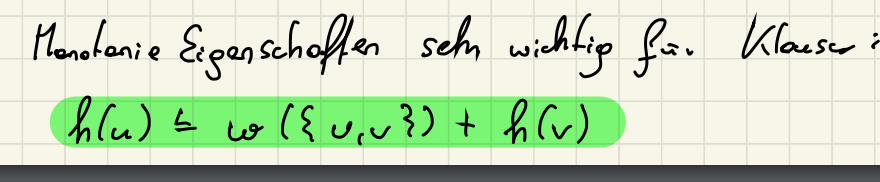 Monotonie Eigenschaften sehr wichtig für Klausur:
h(u) ≤ w({u,v}) + h(v)